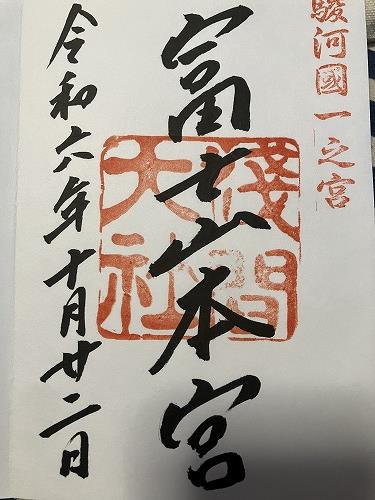 駿河國一之宮
富士山本宮
淺間
大社
令和六年十月廿二日